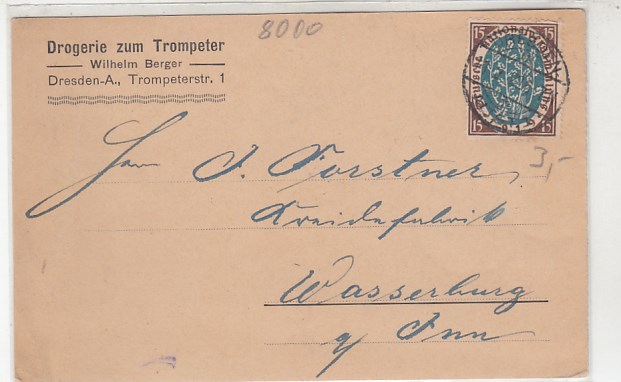 8000
Drogerie zum Trompeter
Wilhelm Berger
Dresden-A., Trompeterstr. 1
15 15
Deutsche Nationalversammlung 1919
15 15
3,-
Herrn J. Forstner,
Kreidefabrik
Wasserburg
a/ Inn